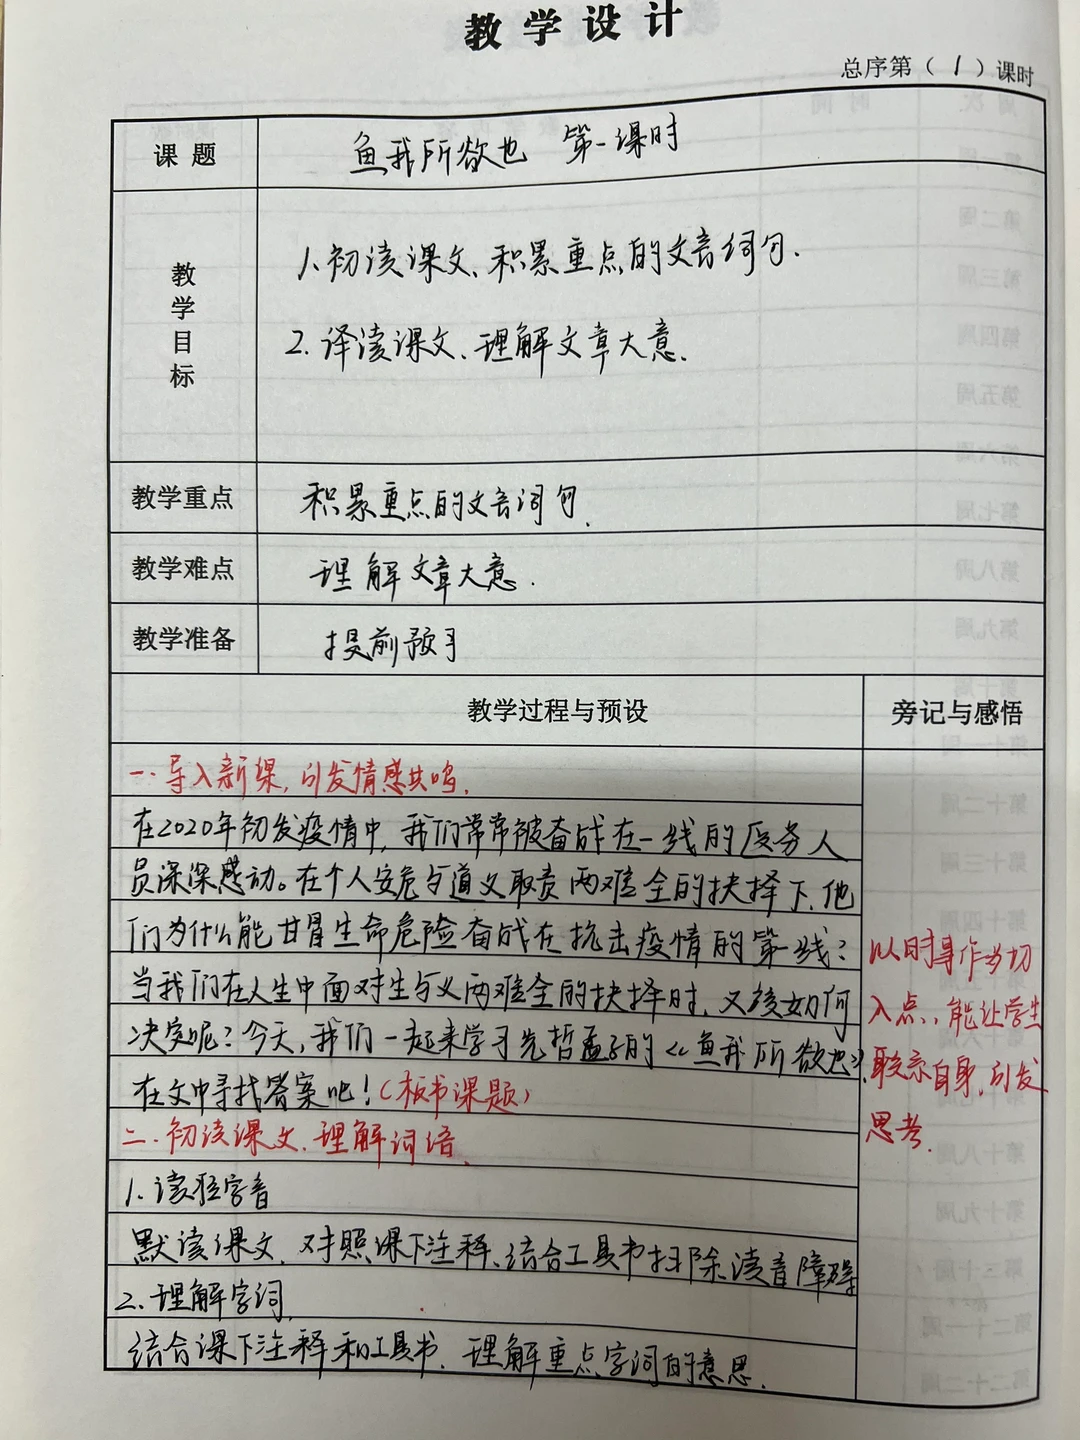 教学设计
总序第（1）课时
课题
鱼我所欲也 第一课时
教学目标
1.初读课文、积累重点的文言词句.
2.译读课文、理解文章大意.
教学重点
积累重点的文言词句.
教学难点
理解文章大意.
教学准备
提前预习
教学过程与预设
旁记与感悟
一.导入新课,引发情感共鸣.
在2020年初发疫情中,我们常常被奋战在一线的医务人
员深深感动。在个人安危与道义取责两难全的抉择下、他
们为什么能甘冒生命危险奋战在抗击疫情的第一线?
当我们在人生中面对生与义两难全的抉择时,又该如何
决定呢?今天,我们一起来学习先哲孟子的《鱼我所欲也》,
在文中寻找答案吧!(板书课题)
二.初读课文、理解词语.
1.读准字音
默读课文、对照课下注释、结合工具书扫除读音障碍
2.理解字词.
结合课下注释和工具书、理解重点字词的意思.
以时事作为切
入点,能让学生
联系自身,引发
思考.